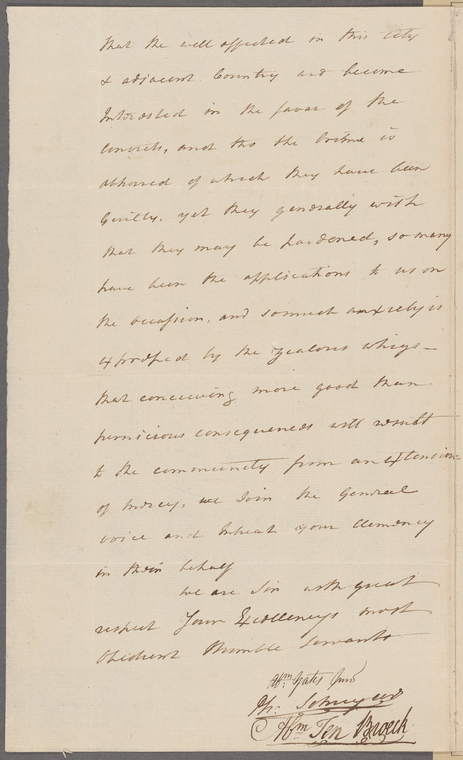 that the well affected in this City
& adjacent Country and become
Interested in the favor of the
Convicts, and tho the Crime is
abhored of which they have been
Guilty, yet they generally wish
that they may be pardoned, so many
have been the applications to us on
the occasion, and so much anxiety is
expressed by the zealous whigs—
that conceiving more good than
pernicious consequences will result
to the community from an extension
of mercy, we Join the General
voice and Intreat your Clemency
in their behalf
we are Sir with great
respect Your Excellencys most
Obedient Humble Servants
Abm: Yates Junr
Ph: Schuyler
Abm Ten Broeck